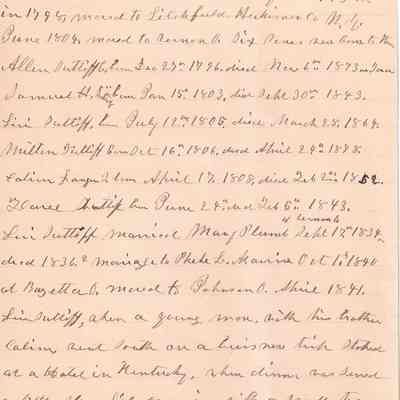 in 1798, moved to Litchfield Herkimer Co N.Y.
June 1804, moved to Vernon O. Six Sons were born to them
Allen Sutliff born Dec 23rd 1796, died Nov 6th 1873 in Iowa
Samuel H. born Jan 15th 1803, died Sept 30th 1843.
Levi Sutliff, born July 12th 1805 died March 28, 1864.
Milton Sutliff born Oct 16th 1806, died April 24th 1878.
Calvin born April 17, 1808, died Feb 2nd 1852.
Flavel Sutliff born June 2nd died Feb 5th 1843.
at Vernon
Levi Sutliff married Mary Plumb Sept 17th 1834,
died 1836. 2nd marriage to Phebe L. Marvin Oct 1st 1840
at Bazetta O. moved to Johnson O. April 1841.
Levi Sutliff, when a young man, with his brother
Calvin, went South on a business trip stoped
at a Hotel in Kentucky, when dinner was served